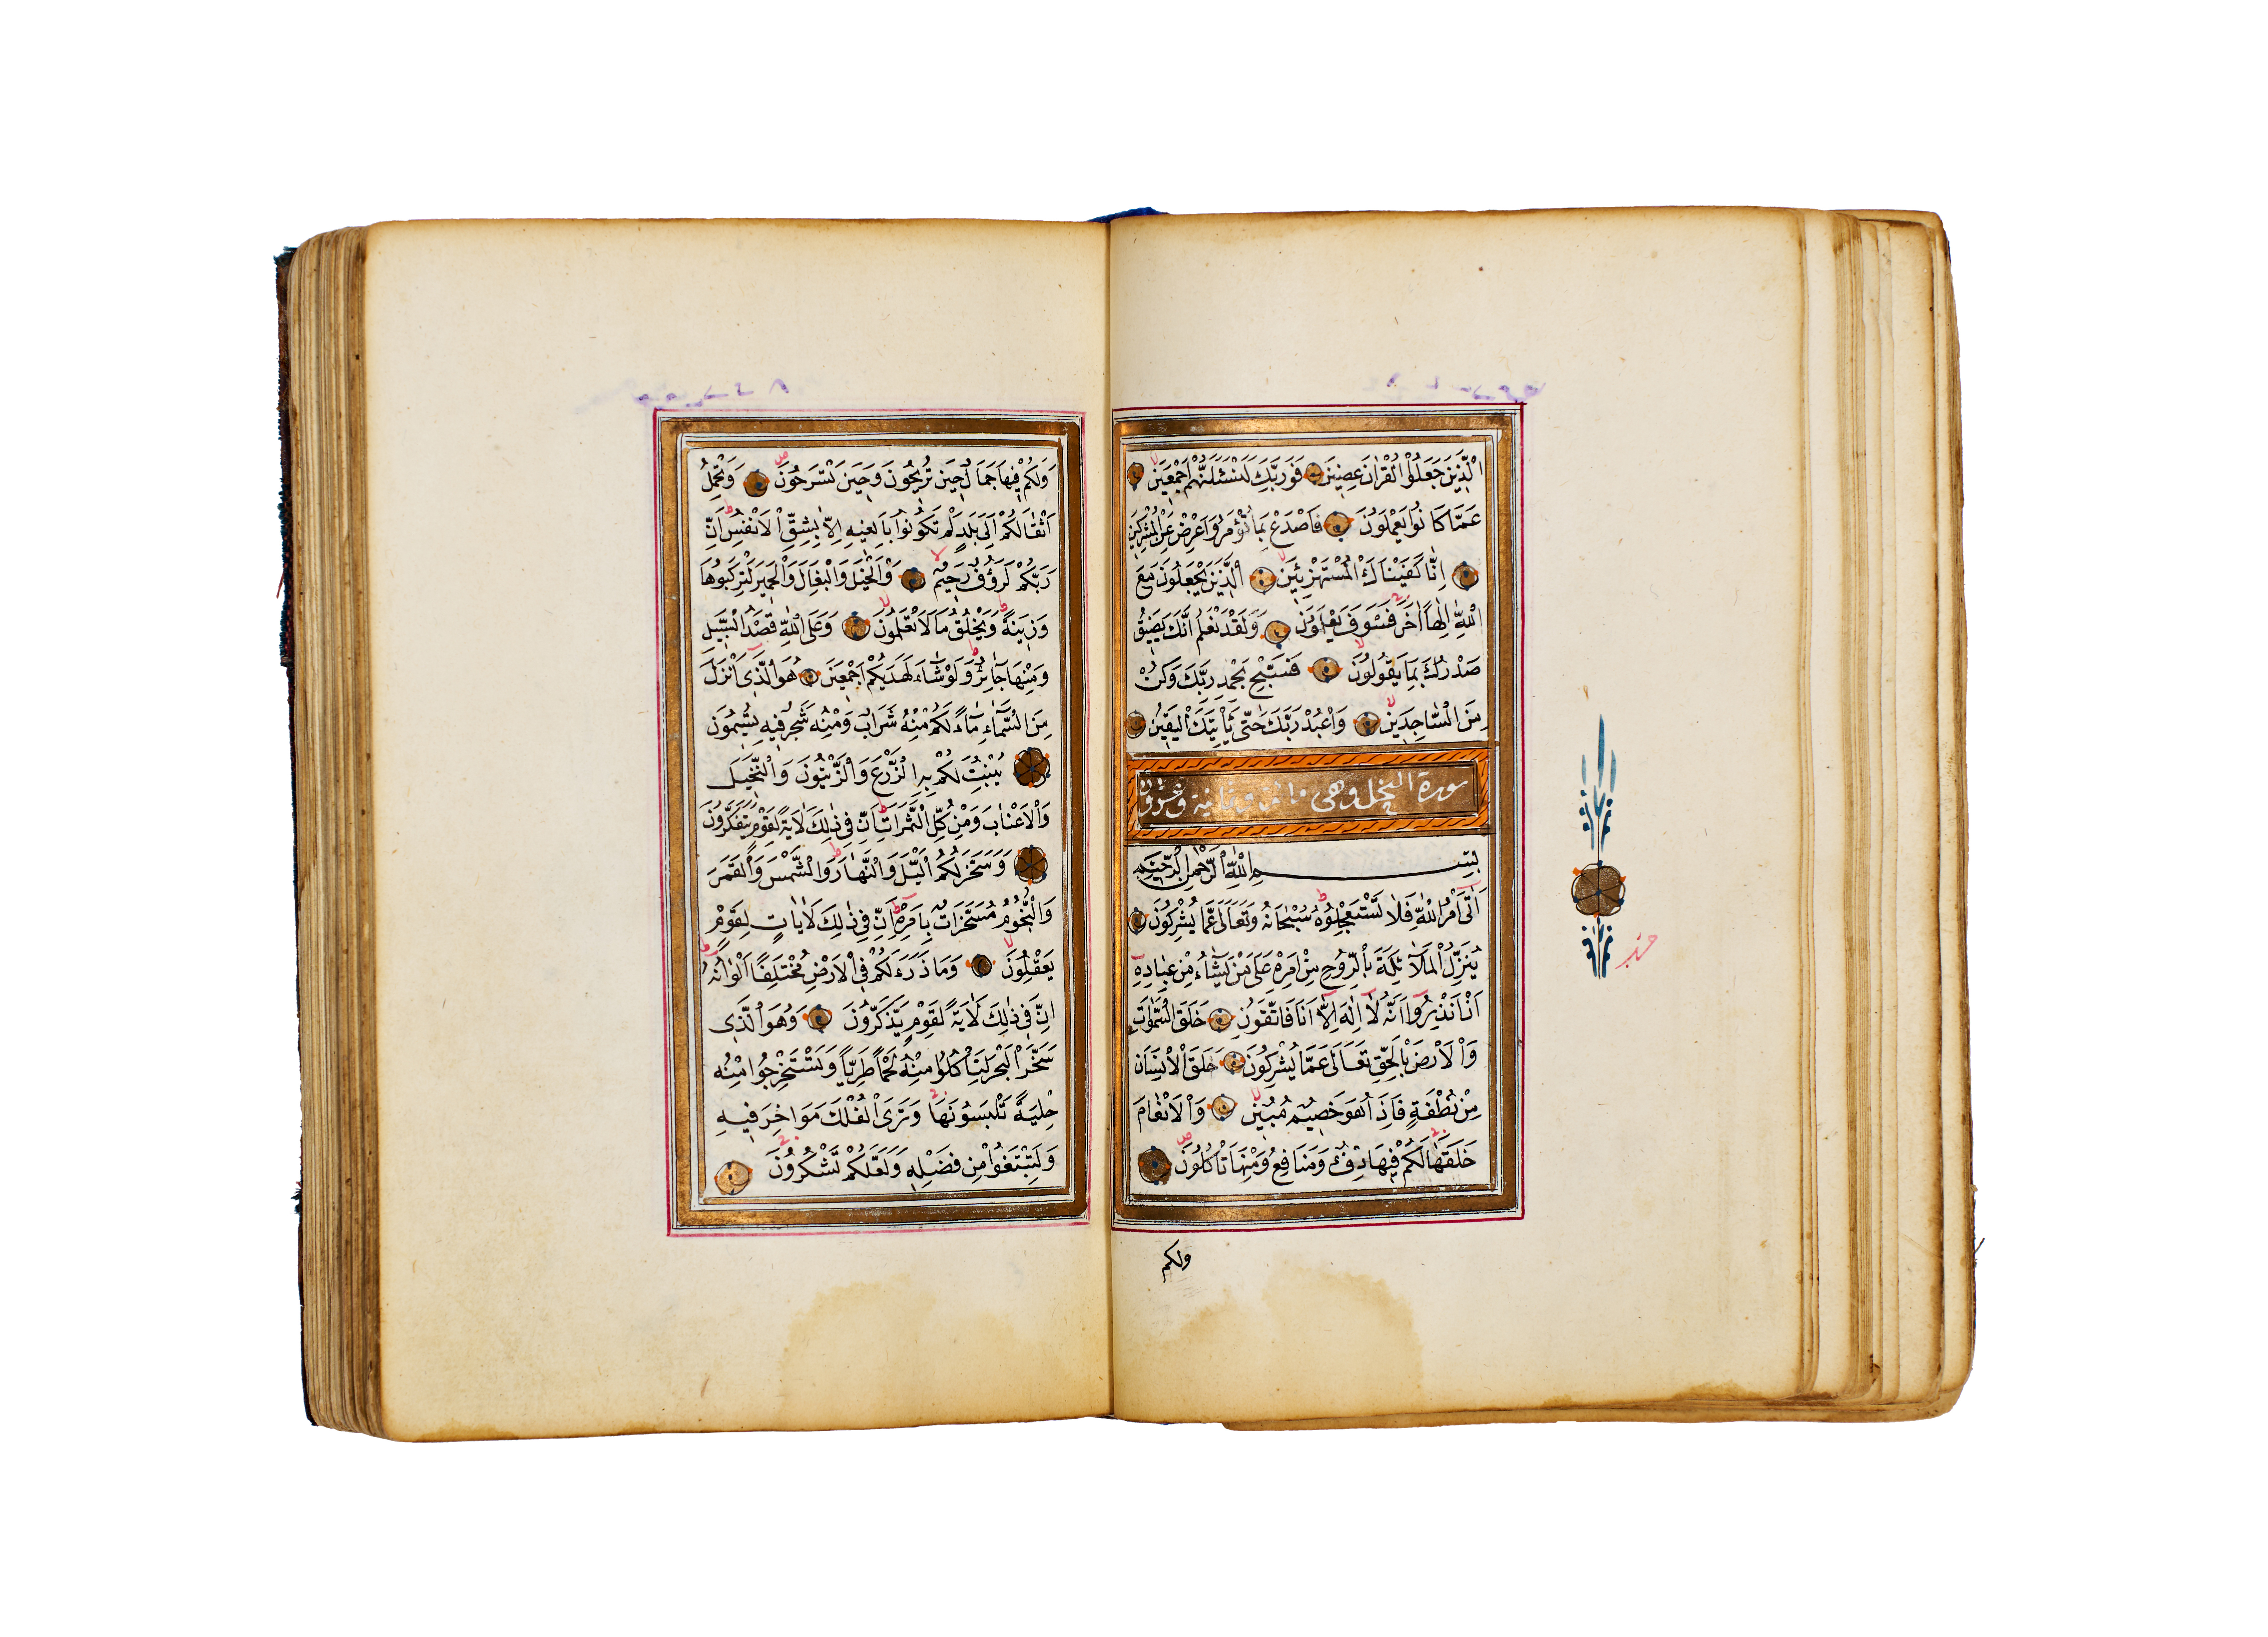 الَّذِينَ جَعَلُوا الْقُرْاٰنَ عِضِينَ فَوَرَبِّكَ لَنَسْـَٔلَنَّهُمْ اَجْمَعِينَ
عَمَّا كَانُوا يَعْمَلُونَ فَاصْدَعْ بِمَا تُؤْمَرُ وَاَعْرِضْ عَنِ الْمُشْرِكِينَ
اِنَّا كَفَيْنَاكَ الْمُسْتَهْزِئِينَ اَلَّذِينَ يَجْعَلُونَ مَعَ
اللّٰهِ اِلٰهًا اٰخَرَ فَسَوْفَ يَعْلَمُونَ وَلَقَدْ نَعْلَمُ اَنَّكَ يَضِيقُ
صَدْرُكَ بِمَا يَقُولُونَ فَسَبِّحْ بِحَمْدِ رَبِّكَ وَكُنْ
مِنَ السَّاجِدِينَ وَاعْبُدْ رَبَّكَ حَتّٰى يَأْتِيَكَ الْيَقِينُ
سورة النحل وهى مائة وثمانية وعشرون
بِسْمِ اللّٰهِ الرَّحْمٰنِ الرَّحِيمِ
اَتٰٓى اَمْرُ اللّٰهِ فَلَا تَسْتَعْجِلُوهُ سُبْحَانَهُ وَتَعَالٰى عَمَّا يُشْرِكُونَ
يُنَزِّلُ الْمَلٰٓئِكَةَ بِالرُّوحِ مِنْ اَمْرِهِ عَلٰى مَنْ يَشَٓاءُ مِنْ عِبَادِهِ
اَنْ اَنْذِرُٓوا اَنَّهُ لَٓا اِلٰهَ اِلَّٓا اَنَا فَاتَّقُونِ خَلَقَ السَّمٰوَاتِ
وَالْاَرْضَ بِالْحَقِّ تَعَالٰى عَمَّا يُشْرِكُونَ خَلَقَ الْاِنْسَانَ
مِنْ نُطْفَةٍ فَاِذَا هُوَ خَصِيمٌ مُبِينٌ وَالْاَنْعَامَ
خَلَقَهَا لَكُمْ فِيهَا دِفْءٌ وَمَنَافِعُ وَمِنْهَا تَأْكُلُونَ
ولكم
حزب
وَلَكُمْ فِيهَا جَمَالٌ حِينَ تُرِيحُونَ وَحِينَ تَسْرَحُونَ وَتَحْمِلُ
اَثْقَالَكُمْ اِلٰى بَلَدٍ لَمْ تَكُونُوا بَالِغِيهِ اِلَّا بِشِقِّ الْاَنْفُسِ اِنَّ
رَبَّكُمْ لَرَؤُفٌ رَحِيمٌ وَالْخَيْلَ وَالْبِغَالَ وَالْحَمِيرَ لِتَرْكَبُوهَا
وَزِينَةً وَيَخْلُقُ مَا لَا تَعْلَمُونَ وَعَلَى اللّٰهِ قَصْدُ السَّبِيلِ
وَمِنْهَا جَٓائِرٌ وَلَوْ شَٓاءَ لَهَدٰيكُمْ اَجْمَعِينَ هُوَ الَّذِى اَنْزَلَ
مِنَ السَّمَٓاءِ مَٓاءً لَكُمْ مِنْهُ شَرَابٌ وَمِنْهُ شَجَرٌ فِيهِ تُسِيمُونَ
يُنْبِتُ لَكُمْ بِهِ الزَّرْعَ وَالزَّيْتُونَ وَالنَّخِيلَ
وَالْاَعْنَابَ وَمِنْ كُلِّ الثَّمَرَاتِ اِنَّ فِى ذٰلِكَ لَاٰيَةً لِقَوْمٍ يَتَفَكَّرُونَ
وَسَخَّرَ لَكُمُ الَّيْلَ وَالنَّهَارَ وَالشَّمْسَ وَالْقَمَرَ
وَالنُّجُومُ مُسَخَّرَاتٌ بِاَمْرِهِ اِنَّ فِى ذٰلِكَ لَاٰيَاتٍ لِقَوْمٍ
يَعْقِلُونَ وَمَا ذَرَاَ لَكُمْ فِى الْاَرْضِ مُخْتَلِفًا اَلْوَانُهُ
اِنَّ فِى ذٰلِكَ لَاٰيَةً لِقَوْمٍ يَذَّكَّرُونَ وَهُوَ الَّذِى
سَخَّرَ الْبَحْرَ لِتَأْكُلُوا مِنْهُ لَحْمًا طَرِيًّا وَتَسْتَخْرِجُوا مِنْهُ
حِلْيَةً تَلْبَسُونَهَا وَتَرَى الْفُلْكَ مَوَاخِرَ فِيهِ
وَلِتَبْتَغُوا مِنْ فَضْلِهِ وَلَعَلَّكُمْ تَشْكُرُونَ